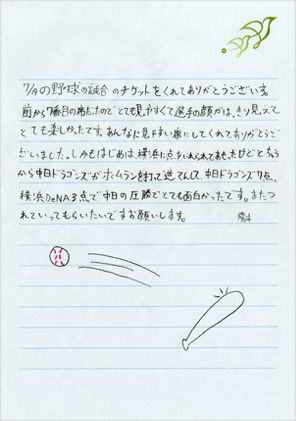 7/9の野球の試合のチケットをくれてありがとうございます。
前から7番目の席だたのでとても見やすくて選手の顔がはっきり見えて
とても楽しかったです。あんなに見やすい席にしてくれてありがとうご
ざいました。しかもはじめは、横浜に点をいれられておもったけどとちゅう
から中日ドラゴンズがホームランを打って逆てんして、中日ドラゴンズ7点、
横浜DeNA3点で中日の圧勝でとても面白かったです。またつ
れていってもらいたいですお願いします。